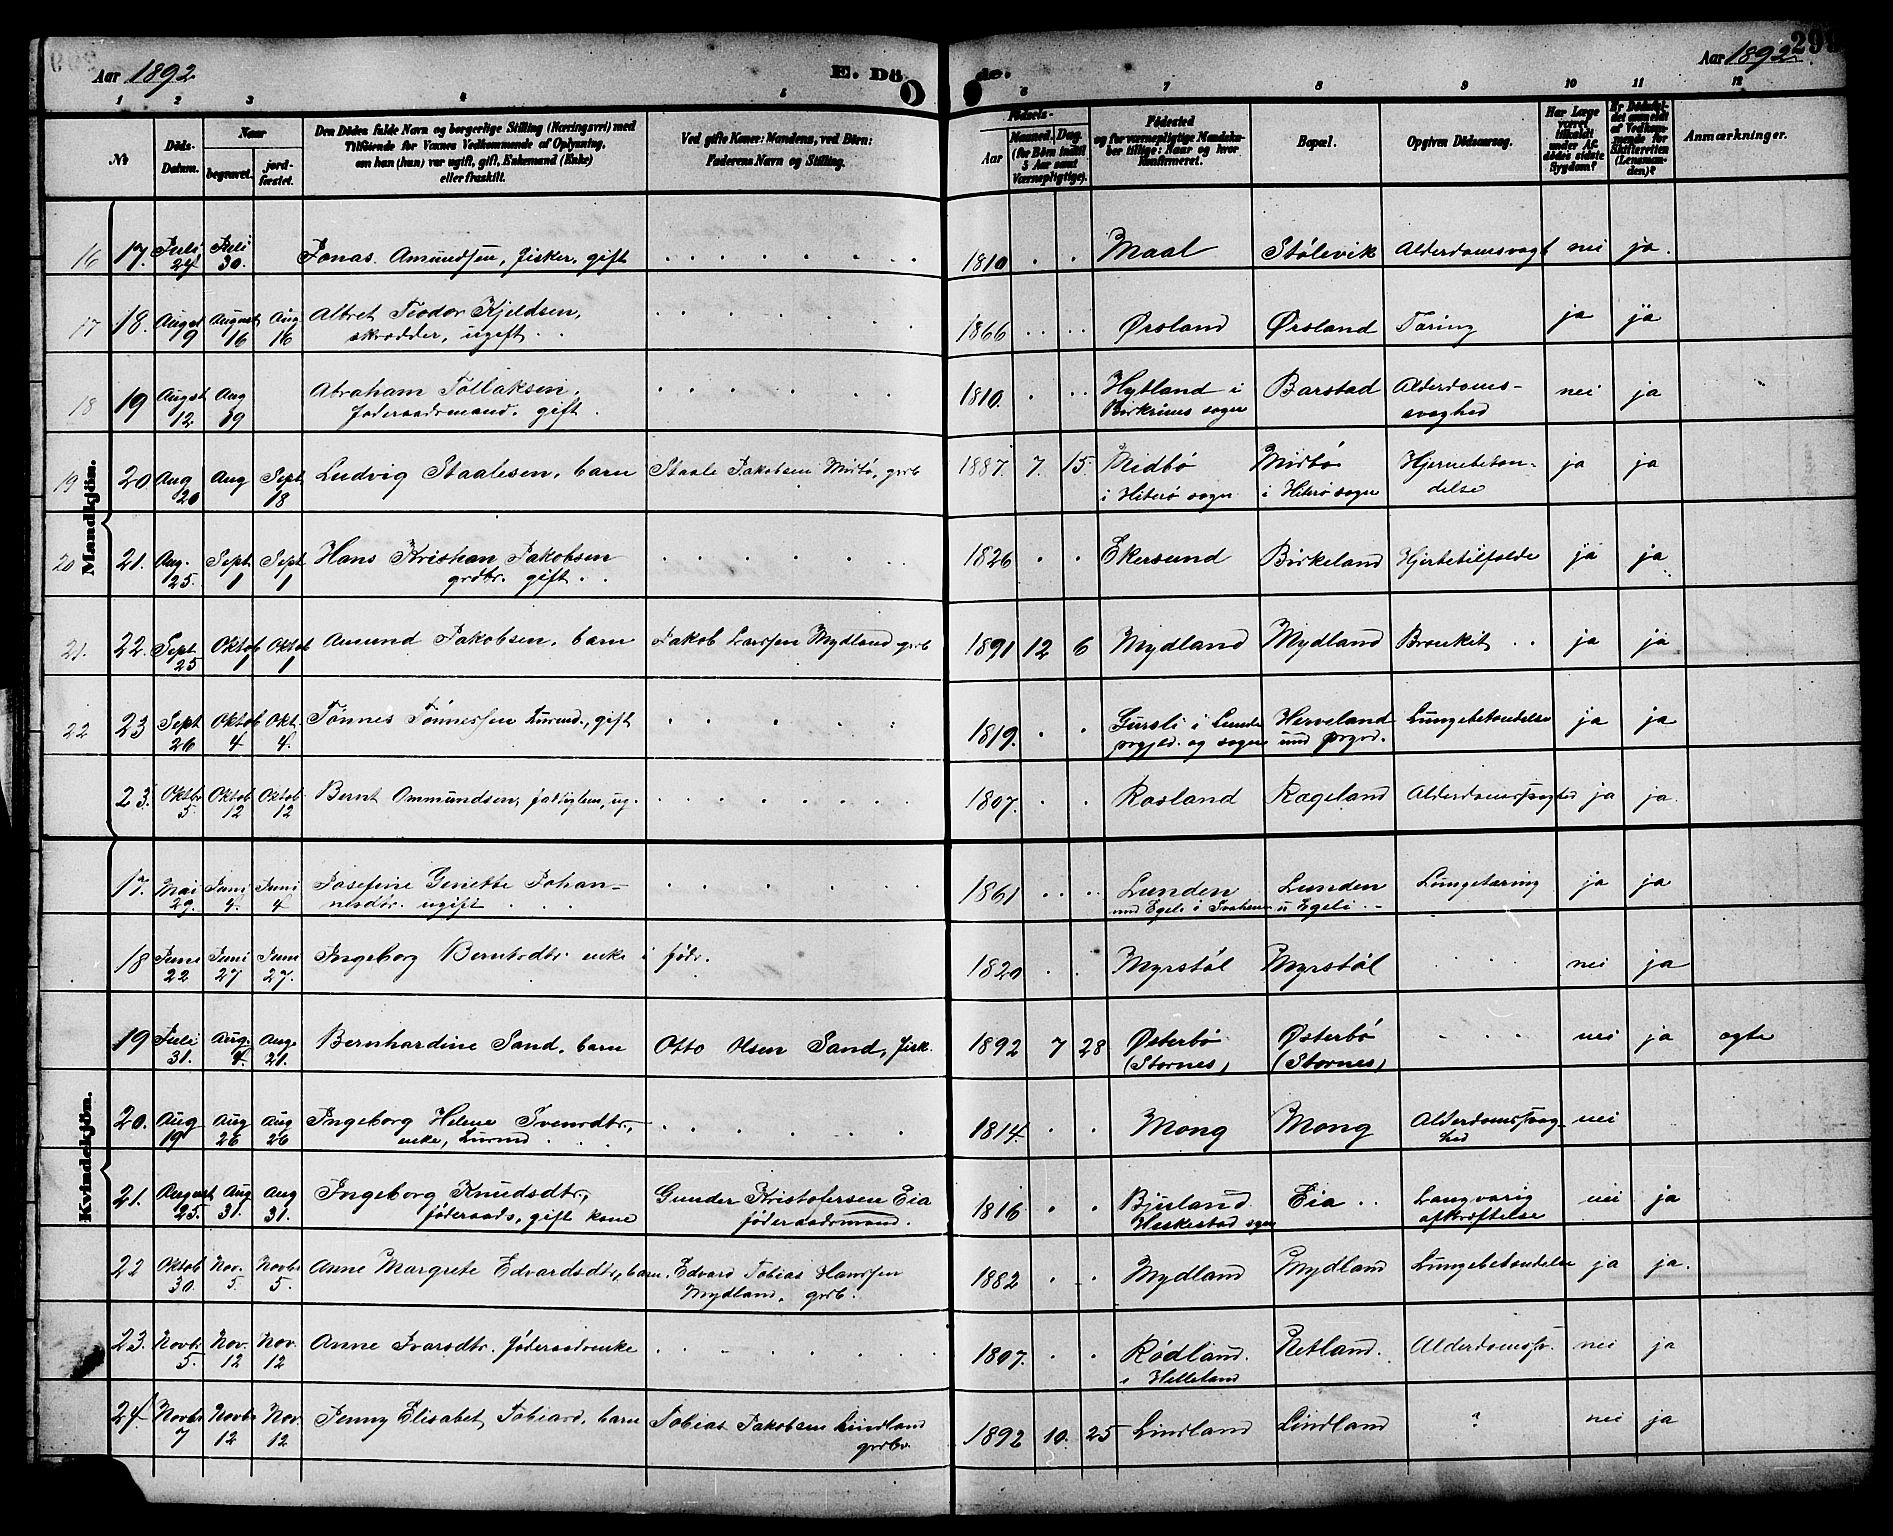 Aar 1892.
E. Dö de.
Aar 1892.
1 2 3 4 5 6 7 8 9 10 11 12
No
Döds-Datum.
Naar
begravet.
jord-fæstet.
Den Dödes fulde Navn og borgerlige Stilling (Næringsvei) med
Tilföiende for Voxnes Vedkommende af Oplysning,
om han (hun) var ugift, gift, Enkemand (Enke)
eller fraskilt.
Ved gifte Koner: Mandens, ved Börn:
Faderens Navn og Stilling.
Födsels-
Aar
Maaned. Dag.
(for Börn indtil
5 Aar samt
Værnepligtige).
Födested
og for værnepligtige Mandska-
ber tillige: Naar og hvor
konfirmeret.
Bopæl.
Opgiven Dödsaarsag.
Har Læge
været
tilkaldt
under Af-
dödes sidste
Sygdom?
Er Dödsfal-
det anmeldt
af Vedkom-
mende for
Skifteretten
(Lensman-
den)?
Anmærkninger.
Mandkjön.
16 17. Juli 24 Juli 30. Jonas Amundsen, fisker, gift 1810 Maal Stölevik Alderdomsvagh nei ja.
17 18. August 9 August 16 Aug 16 Albret Teodor Kjeldsen,
skrædder, ugift 1866 Ørsland Ørsland Tæring ja ja
18 19 August 12 Aug 19 Abraham Tollaksen,
föderaadsmand, gift 1810. Hytland i
Birkrims sogn Barstad Alderdoms-
svaghed nei ja
19 20 Aug 20 Aug Sept 18 Ludvig Staalesen, barn Staale Jakobsen Midbö, grb 1887. 7. 15. Midbö
i Hiterö sogn Midbö
i Hiterö sogn Hjernebeten-
delse ja ja
20 21. Aug. 25. Sept 1 Sept 1 Hans Kristian Jakobsen
grdbr. gift 1826 Ekersund Birkeland Hjertetilfælde ja ja
21. 22. Sept 25 Oktob 1 Oktob 1 Amund Jakobsen, barn Jakob Larsen Mydland grb 1891 12 6 Mydland Mydland Bronkit ja ja
22 23 Sept 26 Oktob 4 Okt. 4. Tönnes Tönnessen gift 1819. Gursli i Lunde
prgjld. og sogn Herveland
Lungebetændelse ja ja
23. Oktbr 5. Oktob 12 Oktob 12 Bernt Ommundsen, fattiglem, ug. 1807. Rosland Rægeland Alderdomssvaghed ja ja.
Kvindekjön.
17. Mai 29. Juni 4. Juni 4 Josefine Genette Johan-
nesdtr. ugift 1861 Lunden
und Egeli i Lunden
u Egeli Lungetæring ja ja
18 Juni 22 Juni 27 Juni 27. Ingeborg Berntsdtr. enke i födr. 1820 Myrstöl Myrstöl nei ja
19 Juli 31. Aug. 4. Aug. 21. Bernhardine Sand, barn Otto Olsen Sand, fisk. 1892 7 28 Østerbö
(Stornes) Østerbö
(Stornes) nei ja ægte
20. Aug 19 Aug 26 Aug 26 Ingeborg Helene Svensdtr.,
enke, 1814 Mong Mong Alderdomssvag-
hed nei
21. August 25. Aug 31. Aug 31. Ingeborg Knudsdtr.,
föderaads, gift kone Gunder Kristofersen Eia
föderaadsmand. 1816 Bjuland
Heskestad sogn Eia Langvarig
afkræftelse nei ja
22 Oktob 30. Nov. 5. Novbr 5. Anne Margrete Edvardsdtr, barn. Edvard Tobias Hansen
Mydland, grb. 1882 Mydland Mydland Lungebetændelse ja ja.
23. Novbr 5. Nov. 12 Nov. 12 Anne Ivarsdtr. föderaadsenke 1807. Rödland.
i Helleland Netland. Alderdomssv. nei ja
24 Novbr 7 Novbr 12 Nov. 12 Jenny Elisabet Tobiasd., barn Tobias Jakobsen Lindland
grdbr. 1892 10. 25 Lindland Lindland ? nei ja